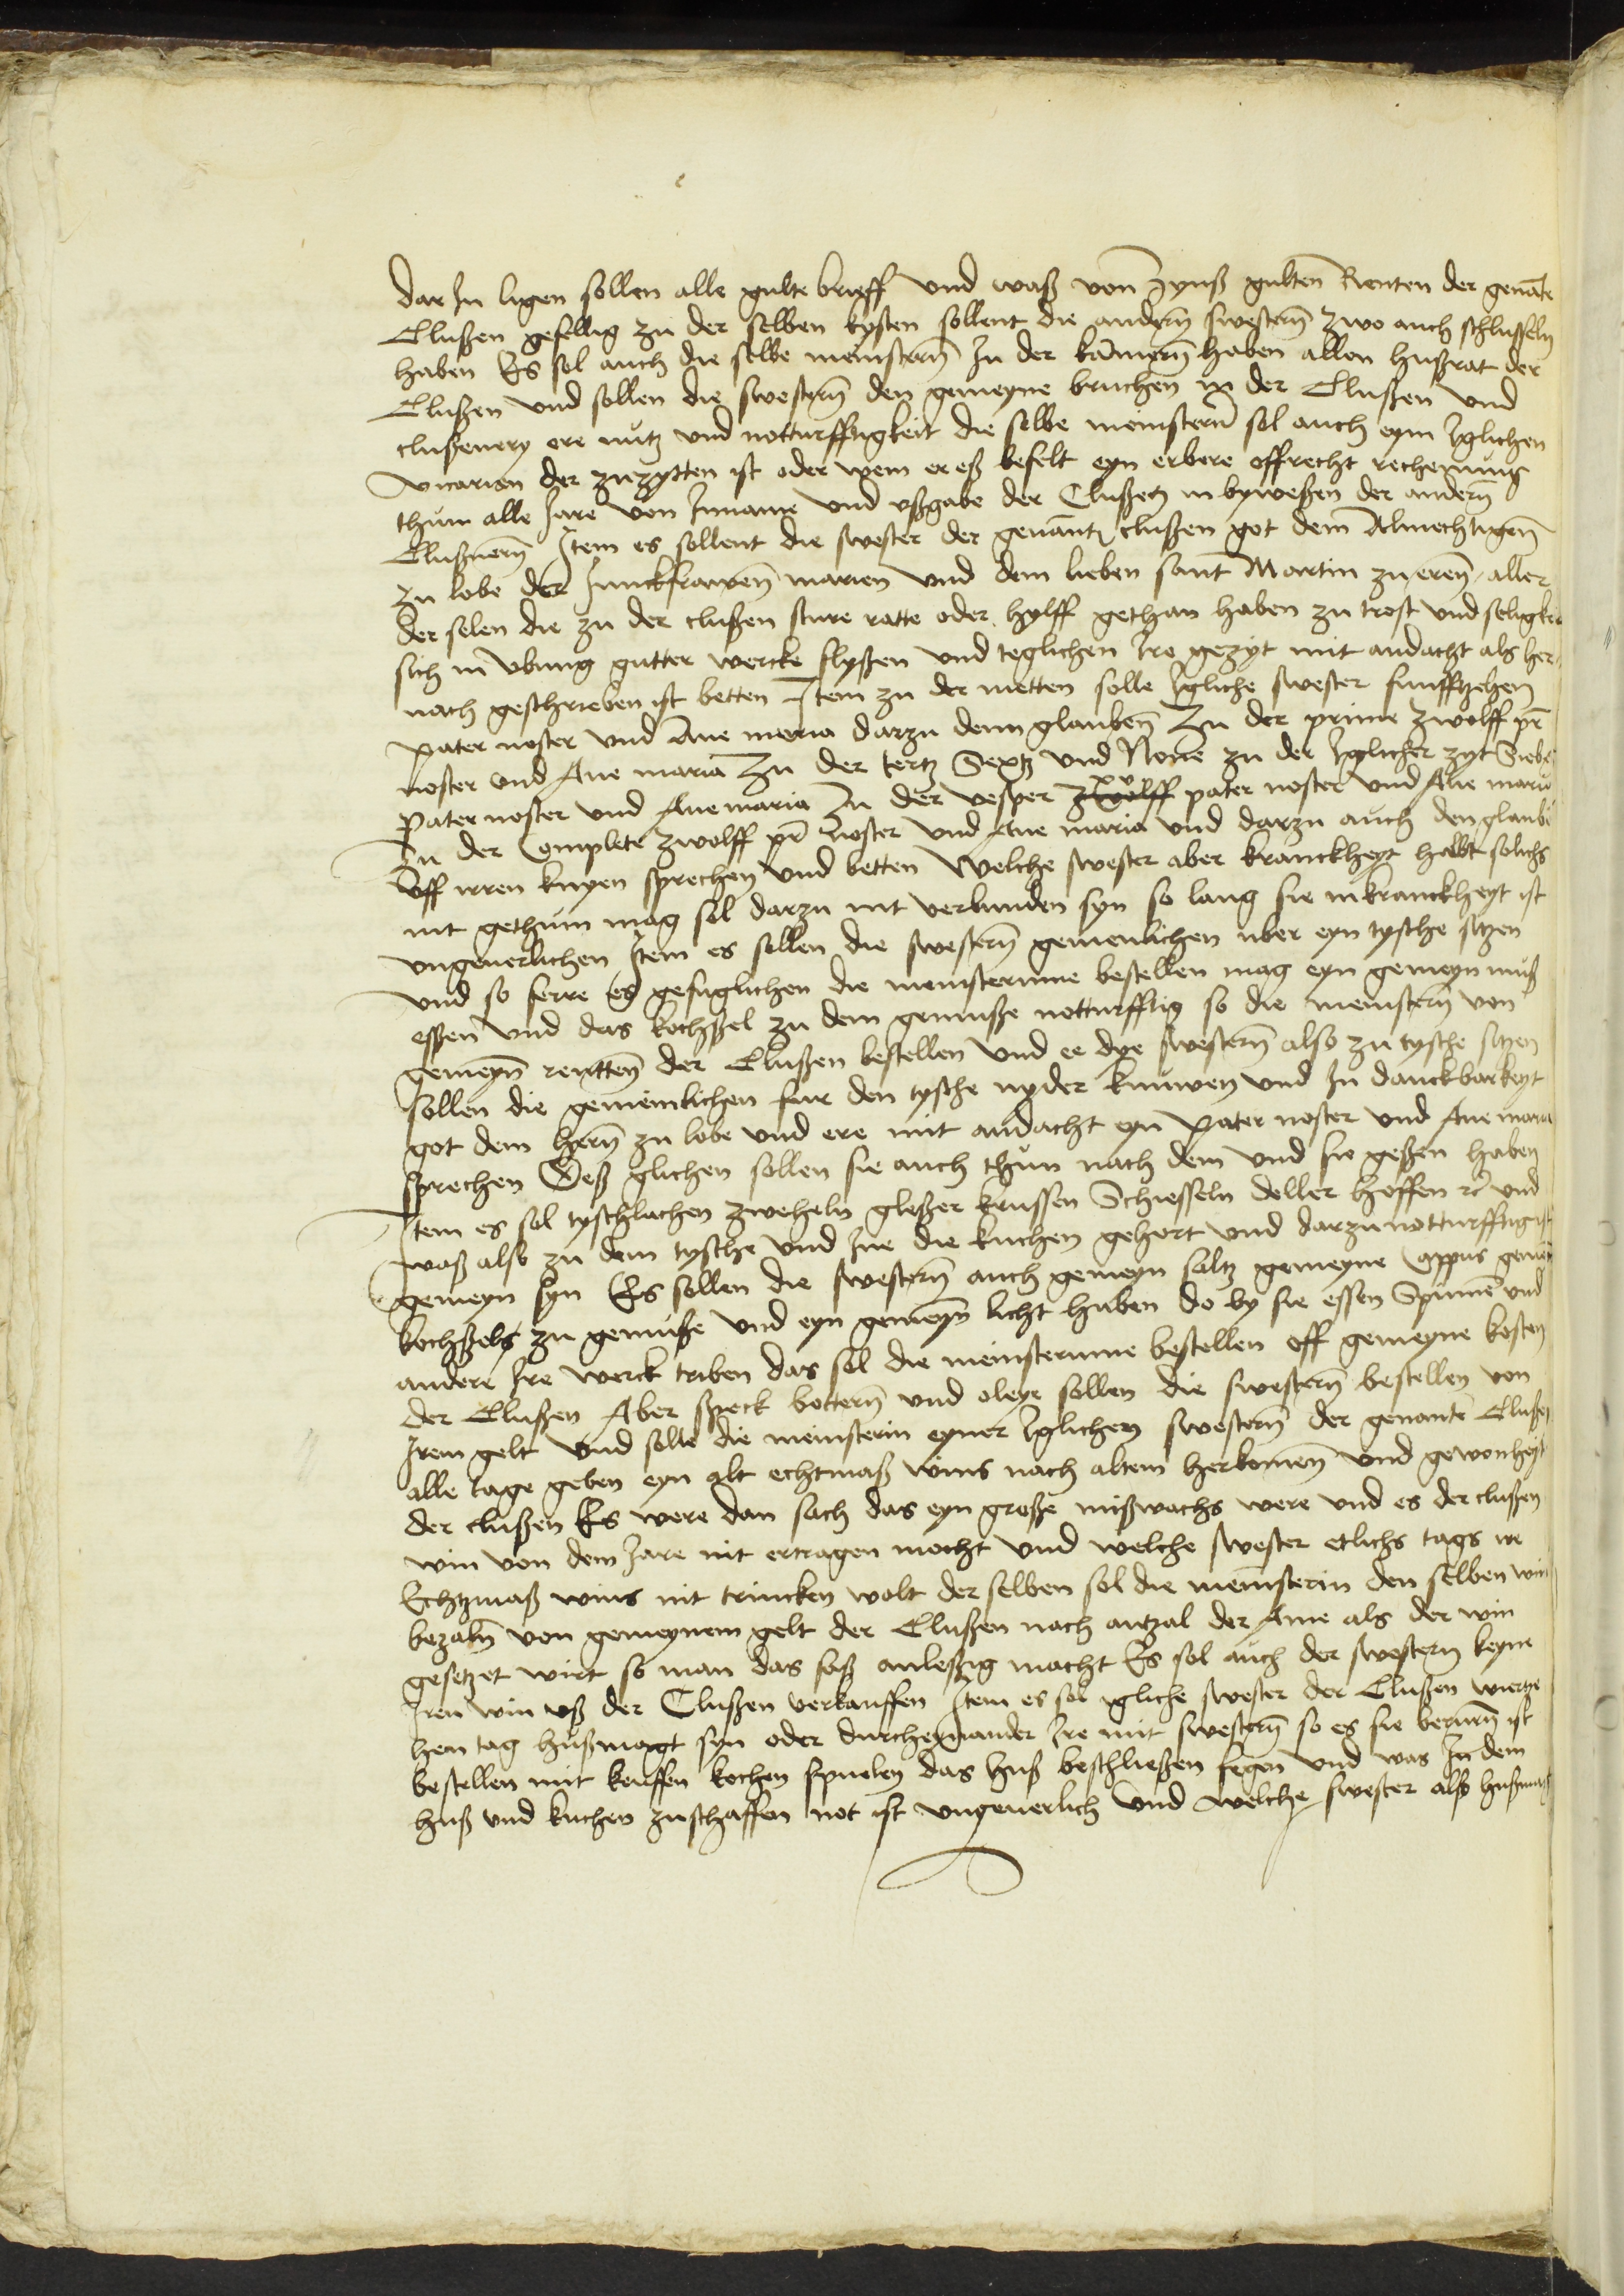 dar Jn ligen sollen alle gulte brieff vnd waß von zynß gulten Renten der genāte
Clußen gefellig zu der selben kysten sollent die andern swestern zwo auch schlusseln
haben Es sol auch die selbe meinstern Jn der kamern haben allen hußrat der
Clußen vnd sollen die swestern den gemeyne bruchen in der Clußen vnd
clußenery ere nutz vnd notturfftigkeit die selbe meinstern sol auch eym Jglichen
vicarien der zuzytten ist oder wem er eß befelt eyn erbere offrecht rechenung
thum alle Jare von Jnname vnd vßgabe der Clußen in bywesen der andern
Clußnern Jtem es sollent die swester der genant clußen got dem Almechtigen
zu lobe der Junckfrawen marien vnd dem lieben sant Martin zu eren aller
der selen die zu der clußen sture ratte oder hylff gethan haben zu trost vnd seligkeit
sich in vbung gutter wercke flyßen vnd teglichen Jre gezyt mit andacht als her
nach geschrieben ist betten Jtem zu der metten solle Jgliche swester funffzehen
pater noster vnd Aue maria darzu denn glauben Zu der prime zwolff pr̄
noster vnd Aue maria Zu der tertz Sextz vnd None zu der Jglicher zyt Sieben
Pater noster vnd Aue maria Zu der vesper xv pater noster vnd Aue maria
Zu der Complete zwolff pr̄ noster vnd Aue maria vnd darzu auch den glaube
Vff irren knyen sprechen vnd betten Welche swester aber kranckheyt halbt solichs
nit gethum mag sol darzu nit verbunden syn so lang sie in kranckheyt ist
vngeuerlichen Jtem es sollen die swestern gemenlichen vber eyn tysche sitzen
vnd so ferre es gefuglichen die meinsterinne bestellen mag eyn gemeyn muß
essen vnd das kochßel zu dem gemuße notturfftig so die meinstern von
gemeyn rentten der Clußen bestellen vnd ee dye swestern also zu tysche sitzen
sollen die gemeinlichen fur den tysche nyder knuwen vnd Jn danckbarkeyt
got dem hern zu lobe vnd ere mit andacht eyn Pater noster vnd Aue maria
sprechen Deß glichen sollen sie auch thun nach dem vnd sie geßen haben
Jtem es sol tyschlachen zweheln gleßer krussen Schiesseln deller heffen rc̄ vnd
waß also zu dem tysche vnd Jne die kuchen gehort vnd darzu notturfftig ist
gemeyn syn Es sollen die swestern auch gemeyn saltz gemeyne Cappus gemeyn
kochßels zu gemuße vnd eyn gemeyn licht haben do by sie essen Spinnē vnd
andere Jre werck triben das sol die meinsterinne bestellen off gemeyne kosten
der Clußen Aber Speck bottern vnd oleye sollen die swestern bestellen von
Jrem gelt vnd solle die meinsterin eyner Jglichen swestern der genante Clußen
alle tage geben eyn alt echtmaß wins nach altem herkomen vnd gewonheyt
der clußen Es were dan sach das eyn große mißwachs were vnd es der clußen
win von dem Jare nit ertragen mocht vnd welche swester etlichs tags ir
Echtzmaß wins nit trincken wolt der selben sol die meinsterin den selben win
bezaln von gemeynem gelt der Clußen nach antzal der Ame als der win
gesetzet wirt so man das faß anleßzig macht Es sol auch der swestern keyne
Jren win vß der Clußen verkauffen Jtem es sol igliche swester der Clußen viertze
hen tag hußmagt syn oder durcheynander Jre mit swestern so es sie berurn ist
bestellen mit keuffen kochen spuelen das huß beschließen fegen vnd was Jn dem
huß vnd kuchen zuschaffen not ist vngeuerlich vnd welche swester also hußmagt